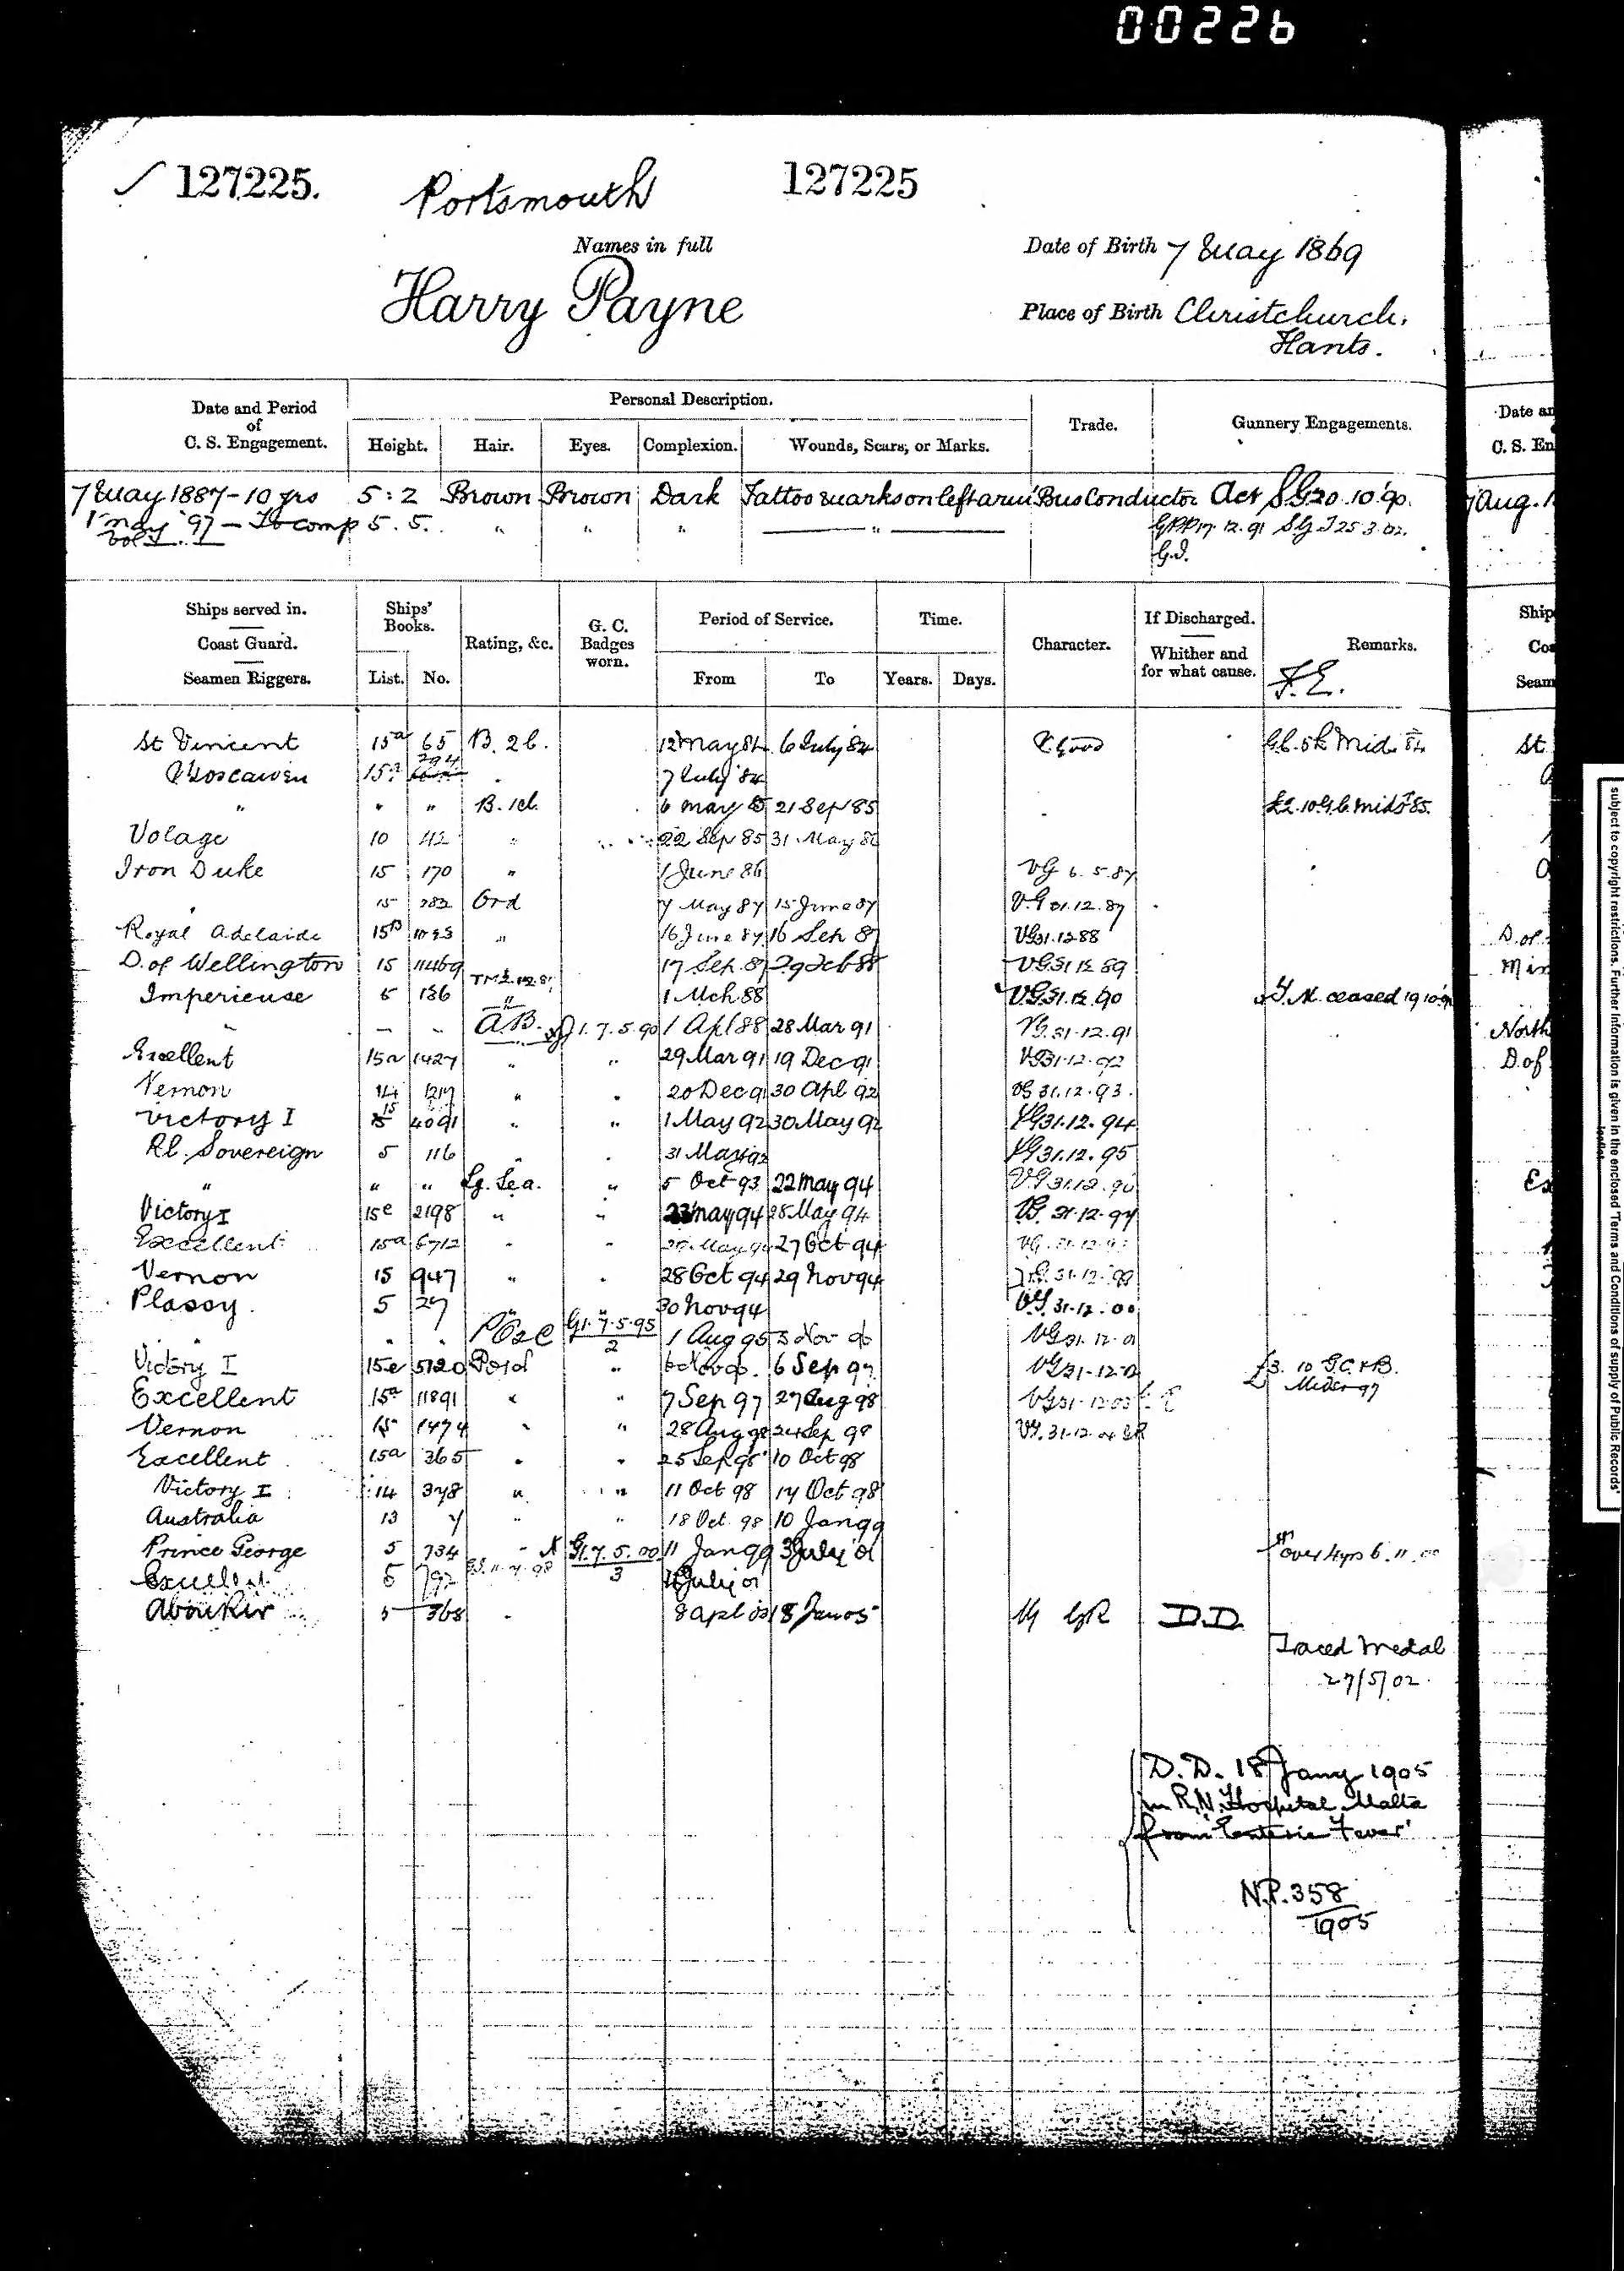 00226
127225. Portsmouth 127225
Names in full
Date of Birth 7 May 1869
Harry Payne
Place of Birth Christchurch,
Hants.
Date and Period of C. S. Engagement.
Personal Description.
Height. Hair. Eyes. Complexion. Wounds, Scars, or Marks.
Trade. Gunnery Engagements.
Date an
C. S. En
7 May 1887 - 10 yrs 5:2 Brown Brown Dark Tattoo marks on left arm Bus Conductor Act SG 20.10.90.
Aug. 1
1 may '97 - To comp 5.5. " " " "
17.12.91 SGT 25.3.02.
Ships served in.
Coast Guard.
Seamen Riggers.
Ships' Books.
List. No.
Rating, &c.
G. C. Badges worn.
Period of Service.
From To
Time.
Years. Days.
Character.
If Discharged.
Whither and for what cause.
Remarks.
F.E.
Ship
Coa
Seam
St Vincent 15a 65 B. 2c. 12 May 84 6 July 84 V. Good
St
Boscawen 15a 7 July 84
" " " B. 1cl. 6 May 85 21 Sep 85
Volage 10 42 " 22 Sep 85 31 May 86
Iron Duke 15 170 " 1 June 86 VG 6.5.87
15 Ord 7 May 87 15 June 87 V.G 31.12.87
Royal Adelaide 15B " 16 June 87 16 Sep 87 VG 31.12.88
D. of
D. of Wellington 15 11469 17 Sep. 87 29 Feb 88 V.G. 31.12.89
Min
Imperieuse 5 136 " 1 Mch 88 V.G. 31.12.90 T.M. ceased 19.10.
" A.B. 1.7.5.90 1 Apl 88 28 Mar 91 VG. 31.12.91
North
Excellent 15a 1427 " " 29 Mar 91 19 Dec 91 VG 31.12.92
D. of
Vernon 14 " " 20 Dec 91 30 Apl 92 VG 31.12.93.
Victory I 15 4091 " " 1 May 92 30 May 92 VG 31.12.94
Rl. Sovereign 5 116 " " 31 May 92 VG 31.12.95
" " " Lg. Sea. " 5 Oct 93 22 May 94
Ex
Victory I 15e 2198 " " 23 May 94 28 May 94 VG. 31.12.97
Excellent 15a 6712 " " 27 Oct 94
Vernon 15 947 " " 28 Oct 94 29 Nov 94 VG. 31.12.99
Plassy. 5 27 " " 30 Nov 94 V.G. 31.12.00
" " " PO2C G1.7.5.95/2 1 Aug 95 5 Nov 96 VG 31.12.01
Victory I 15e 5120 " 6 Nov 96. 6 Sep 97
Excellent 15a 11891 " " 7 Sep 97 27 Aug 98
Vernon 15 1474 " " 28 Aug 98 24 Sep 98
Excellent 15a 365 " " 25 Sep 98 10 Oct 98
Victory I 14 378 " " 11 Oct 98 17 Oct 98
Australia 13 " " 18 Oct. 98 10 Jan 99
Prince George 5 734 " G1.7.5.00/3 11 Jan 99 3 July 01 over 4 yrs 6.11.00
Excellent 5 July 01
Aboukir 5 368 " 8 Apl 18 Jan 05 VG D.D.
Traced Medal
27/5/02.
D.D. 18 Jany 1905
in R.N. Hospital Malta
from 'Enteric Fever'
N.P. 358
1905
subject to copyright restrictions. Further information is given in the enclosed 'Terms and Conditions of supply of Public Records' leaflet